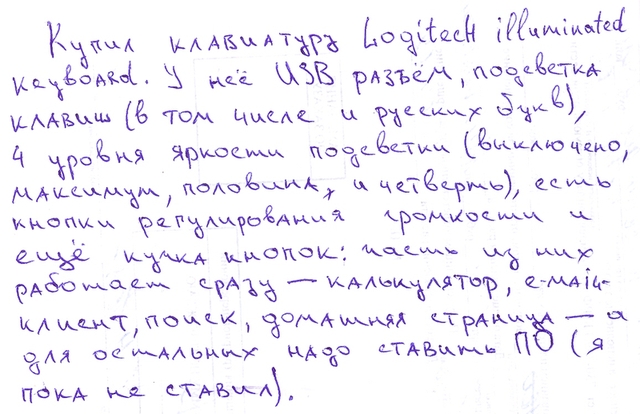 Купил клавиатуру Logitech illuminated
keyboard. У неё USB разъём, подсветка
клавиш (в том числе и русских букв),
4 уровня яркости подсветки (выключено,
максимум, половина, и четверть), есть
кнопки регулирования громкости и
ещё кучка кнопок: часть из них
работает сразу — калькулятор, e-mail-
клиент, поиск, домашняя страница — а
для остальных надо ставить ПО (я
пока не ставил).